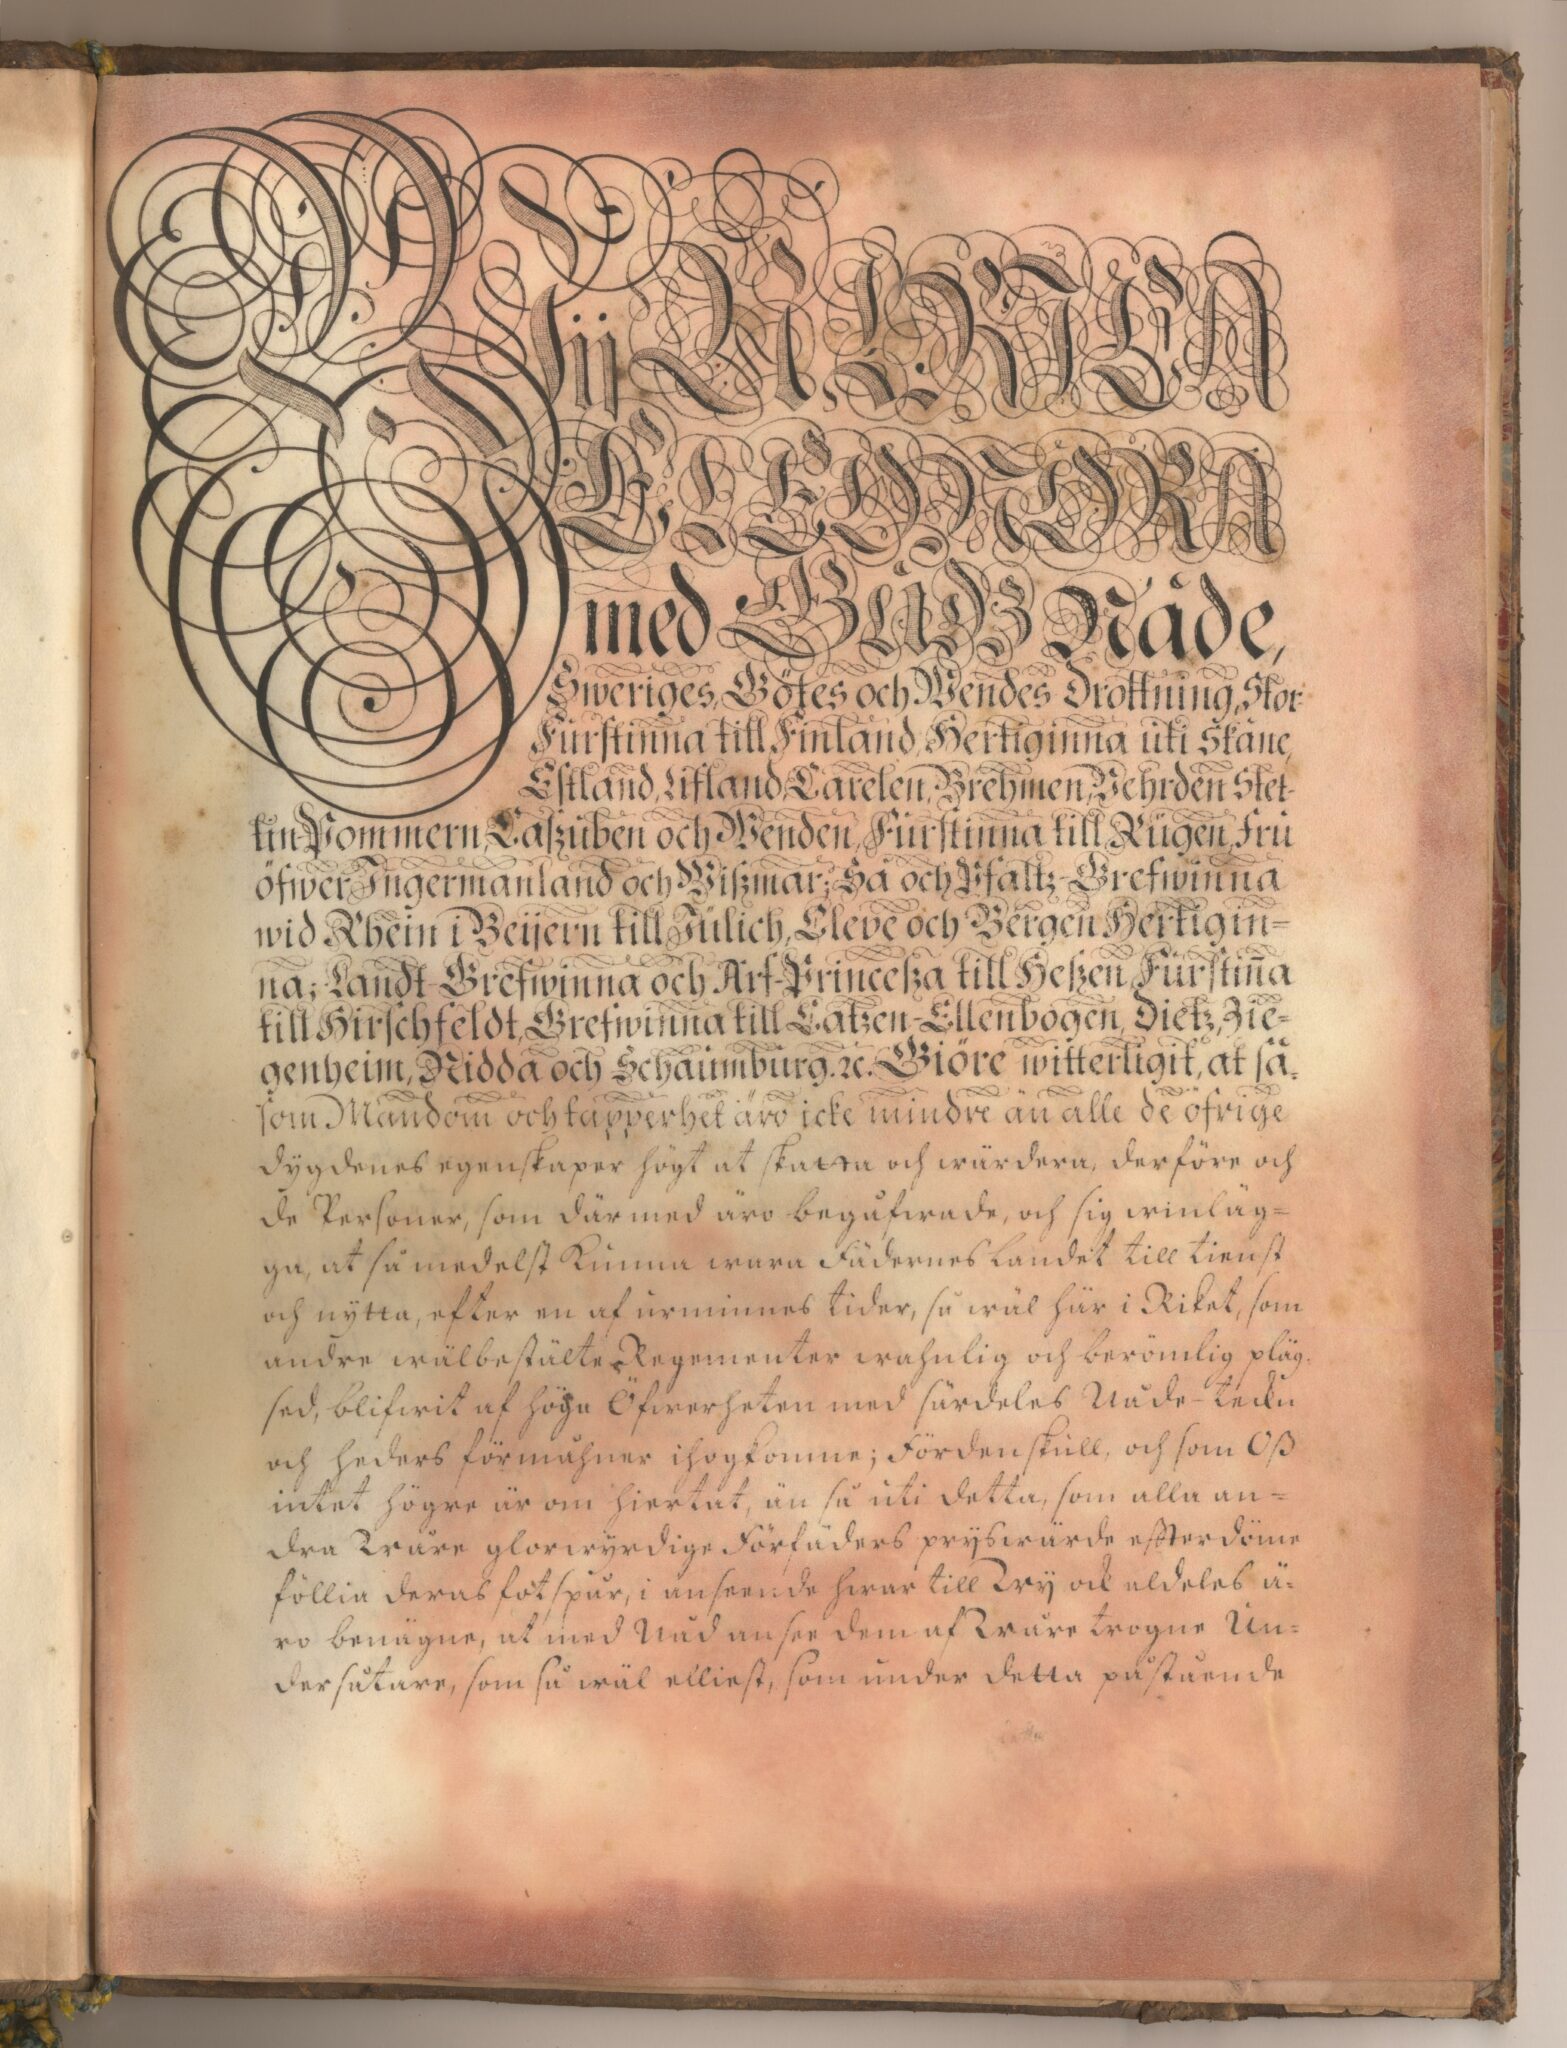 Wii ULRICA
ELEONORA
med GUDz Nåde,
Sweriges, Götes och Wendes Drottning, Stor-
Fürstinna till Finland, Hertiginna uti Skåne,
Estland, Lifland, Carelen, Brehmen, Vehrden Stet-
tin Pommern, Caszuben och Wenden, Fürstinna till Rügen, Fru
öfwer Ingermanland och Wiszmar; Så och Pfaltz-Grefwinna
wid Rhein i Beijern till Jülich, Cleve och Bergen Hertigin=
na; Landt-Grefwinna och Arf-Princesza till Heszen, Fürstinna
till Hirschfeldt, Grefwinna till Catzen-Ellenbogen, Dietz, Zie=
genheim, Nidda och Schaumburg. &c. Giöre witterligit, at så-
som Mandom och tapperhet äro icke mindre än alle de öfrige
dygdenes egenskaper högt at skatta och wärdera, derföre och
de Personer, som därmed äro begåfwade, och sig winläg=
ga, at så medelst kunna wara Fäderneslandet till tienst
och nytta, efter en af urminnes tider, så wäl här i Riket, som
andre wälbestälte Regementer wahnlig och berömlig pläg-
sed, blifwit af höga Öfwerheten med särdeles Nåde-teckn
och heders förmåhner ihogkomne; Fördenskull, och som Oß
intet högre är om hiertat, än så uti detta, som alla an=
dra Wåre glorwyrdige Förfäders pryswärde efterdöme
föllia deras fotspår, i anseende hwar till Wij ock aldeles ä-
ro benägne, at med Nåd ansee dem af Wåre trogne Un=
dersåtare, som så wäl elliest, som under detta påstående